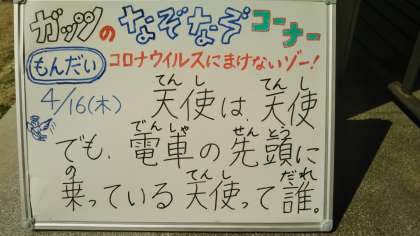 ガッツの なぞなぞ コーナー
もんだい コロナウイルスにまけないゾー!
4/16(木) 天使は、天使
てんし てんし
でも、電車の先頭に
でんしゃ せんとう
乗っている天使って誰。
の てんし だれ